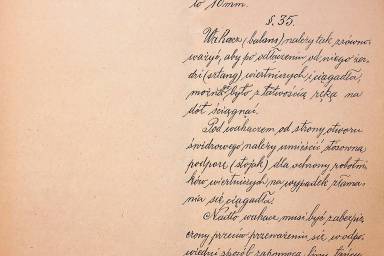 to 10 mm.
§. 35.
Wahacz (balans) należy tak zrówno-
ważyć, aby po odłączeniu od niego żer-
dzi (sztang) wiertniczych i ciągadła,
można było, z łatwością ręką na
dół ściągnąć.
Pod wahaczem, od strony otworu
świdrowego, należy umieścić stosowną
podporę (stojak), dla ochrony robotni-
ków wiertniczych, na wypadek złama-
nia się ciągadła.
Nadto, wahacz musi być zabezpie-
czony przeciw przeważeniu się, w odpo-
wiedni sposób zapomocą liny,